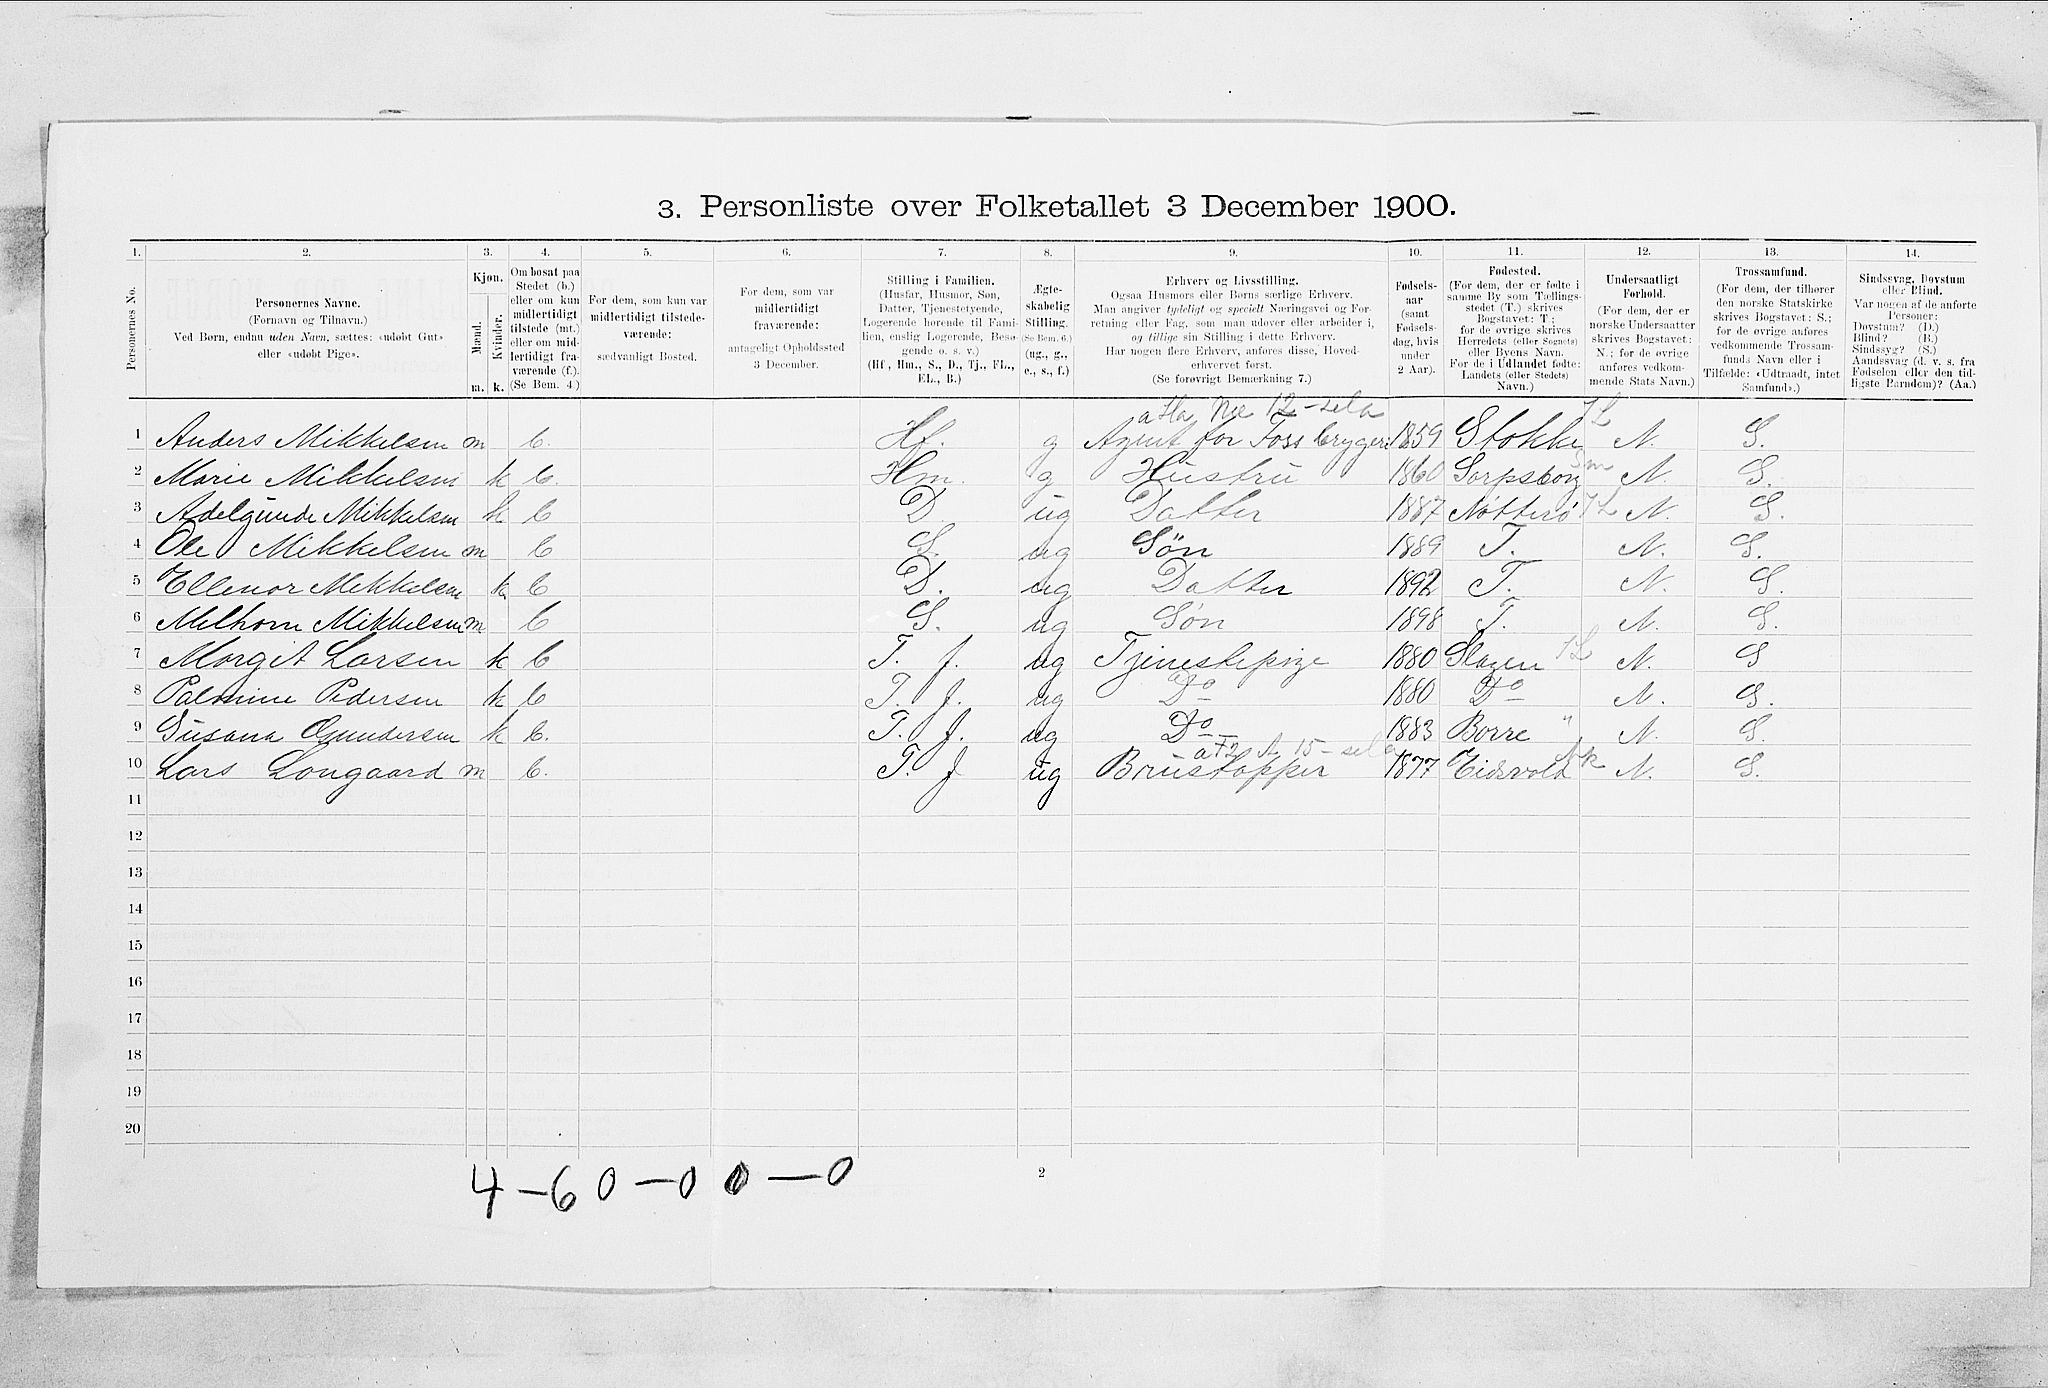 3. Personliste over Folketallet 3 December 1900.
1. 2. 3. 4. 5. 6. 7. 8. 9. 10. 11. 12. 13. 14.
Personernes No.
Personernes Navne.
(Fornavn og Tilnavn.)
Ved Børn, endnu uden Navn, sættes: «udøbt Gut»
eller «udøbt Pige».
Kjøn.
Mænd. Kvinder.
m. k.
Om bosat paa
Stedet (b.)
eller om kun
midlertidigt
tilstede (mt.)
eller om mid-
lertidigt fra-
værende (f.).
(Se Bem. 4.)
For dem, som kun var
midlertidigt tilstede-
værende:
sædvanligt Bosted.
For dem, som var
midlertidigt
fraværende:
antageligt Opholdssted
3 December.
Stilling i Familien.
(Husfar, Husmor, Søn,
Datter, Tjenestetyende,
Logerende hørende til Fami-
lien, enslig Logerende, Besø-
gende o. s. v.)
(Hf., Hm., S., D., Tj., FL.,
EL., B.)
Ægte-
skabelig
Stilling.
(Se Bem. 6.)
(ug., g.,
e., s., f.)
Erhverv og Livsstilling.
Ogsaa Husmors eller Børns særlige Erhverv.
Man angiver tydeligt og specielt Næringsvei og For-
retning eller Fag, som man udover eller arbeider i,
og tillige sin Stilling i dette Erhverv.
Har nogen flere Erhverv, anføres disse, Hoved-
erhvervet først.
(Se forøvrigt Bemærkning 7.)
Fødsels-
aar
(samt
Fødsels-
dag, hvis
under
2 Aar).
Fødested.
(For dem, der er fødte i
samme By som Tællings-
stedet (T.) skrives
Bogstavet: T;
for de øvrige skrives
Herredets (eller Sognets)
eller Byens Navn.
For de i Udlandet fødte:
Landets (eller Stedets)
Navn.)
Undersaatligt
Forhold.
(For dem, der er
norske Undersaatter
skrives Bogstavet:
N.; for de øvrige
anføres vedkom-
mende Stats Navn.)
Trossamfund.
(For dem, der tilhører
den norske Statskirke
skrives Bogstavet: S.;
for de øvrige anføres
vedkommende Trossam-
funds Navn eller i
Tilfælde: «Udtraadt, intet
Samfund».)
Sindssvag, Døvstum
eller Blind.
Var nogen af de anførte
Personer:
Døvstum? (D.)
Blind? (B.)
Sindssyg? (S.)
Aandssvag (d. v. s. fra
Fødselen eller den tid-
ligste Barndom)? (Aa.)
12-sela
1 Anders Mikkelsen m b. Hf. g Agent for Foss brygeri 1859 Stokke JL N. S.
2 Marie Mikkelsen k b. Hm. g Hustru 1860 Sarpsborg Sm N. S.
3 Adelgunde Mikkelsen k b D ug Datter 1887 Nøtterø JL N. S.
4 Ole Mikkelsen m b S. ug Søn 1889 T. N. S.
5 Ellenor Mikkelsen k b D. ug Datter 1892 T. N. S.
6 Melhorn Mikkelsen m b S. ug Søn 1898 T. N. S.
7 Margit Larsen k b T. f. ug Tjenestepige 1880 Slagen JL N. S
8 Palmine Pedersen k b T. f. ug Do 1880 Do N. S.
9 Susana Gundersen k b. T. f. ug Do 1883 Borre " N. S.
15-sela
10 Lars Longaard m b. T. f ug Brustapper 1877 Eidsvold Ak N. S.
11
12
13
14
15
16
17
18
19
20
4 – 6 0 – 0 0 – 0
2